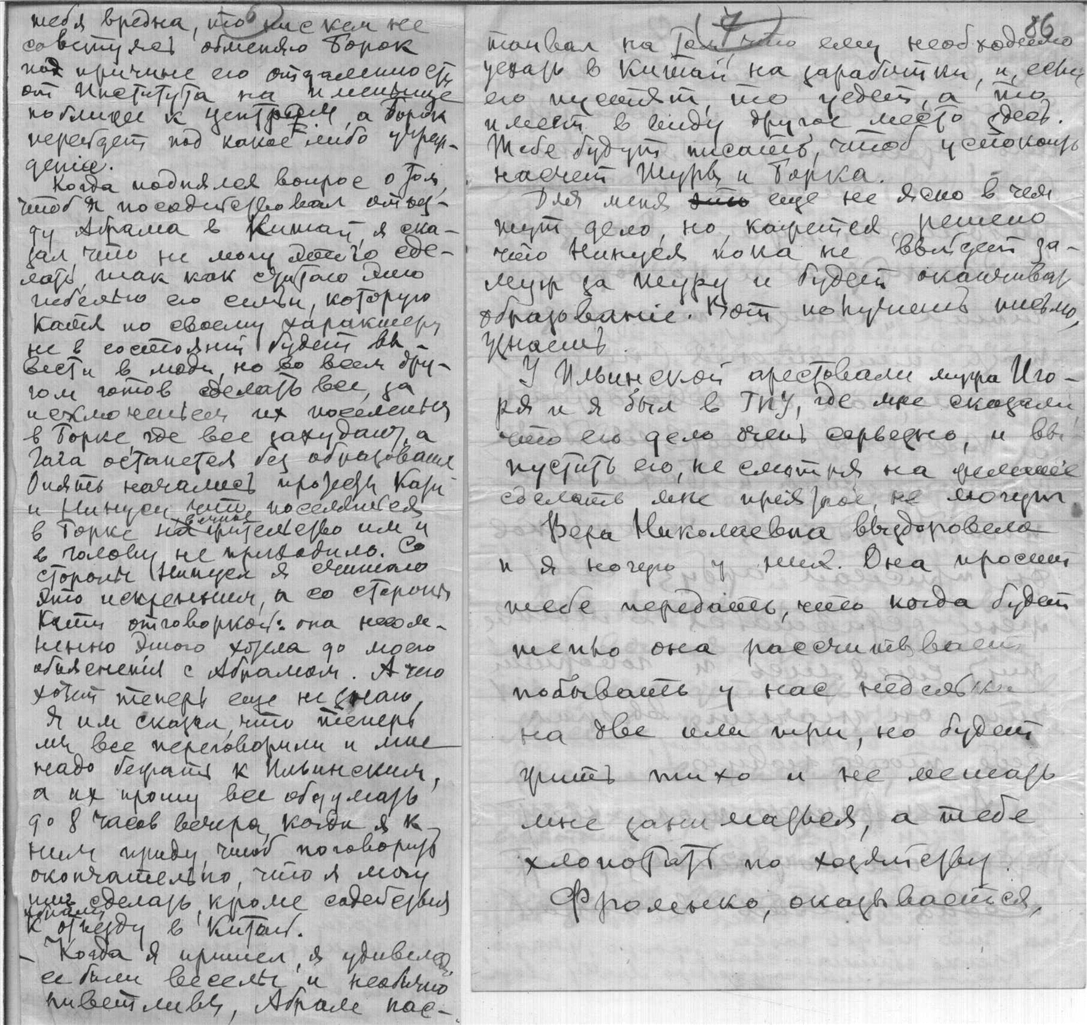 6
тебя вредна, то ни с кем не
советуясь обменяю Борок
под причине его отдаленности
от Института на именьице
поближе к центрам, а Борок
перейдет под какое либо учреж-
дение.
Когда поднялся вопрос о том,
чтоб я посодействовал отъез-
ду Абрама в Китай я ска-
зал что не могу этого сде-
лать, так как считаю это
гибелью его семьи, которую
Катя по своему характеру
не в состоянии будет вы-
вести в люди, но во всем дру-
гом готов сделать все, за
исключеньем их поселенья
в Борке, где все захудают, а
Гага останется без образования
Опять начались прожекты Кати
и Нинуси, что поселятся
в Борке на вечное жительство им и
в голову не приходило. Со
стороны Нинуси я считаю
это искренним, а со стороны
Кати отговоркой: она несом-
ненно этого хотела до моего
объяснения с Абрамом. А что
хотят теперь еще не знаю,
Я им сказал, что теперь
мы все переговорили и мне
надо бежать к Ильинским,
а их прошу все обдумать
до 8 часов вечера, когда я к
ним приду, чтоб поговорить
окончательно, что я могу
им сделать, кроме содействия
Абраму
к отъезду в Китай.
– Когда я пришел, я удивился,
все были веселы и необычно
приветливы, Абрам нас-
7
86
таивал на том что ему необходимо
уехать в Китай на заработки, и, если
его пустят, то уедет, а то
имеет в виду другое место здесь.
Тебе будут писать, чтоб успокоить
насчет Шуры и Борка.
Для меня это еще не ясно в чем
тут дело, но кажется решено
что Нинуся пока не выйдет за-
муж за Шуру и будет оканчивать
образование. Вот получишь письмо,
узнаешь.
У Ильинской арестовали мужа Иго-
ря и я был в ГПУ, где мне сказали
что его дело очень серьезно, и вы-
пустить его, не смотря на желание
сделать мне приятное, не могут.
Вера Николаевна выздоровела
и я ночую у них. Она просит
тебе передать, что когда будет
тепло она рассчитывает
побывать у нас недельки
на две или три, но будет
жить тихо и не мешать
мне заниматься, а тебе
хлопотать по хозяйству.
Фроленко, оказывается,